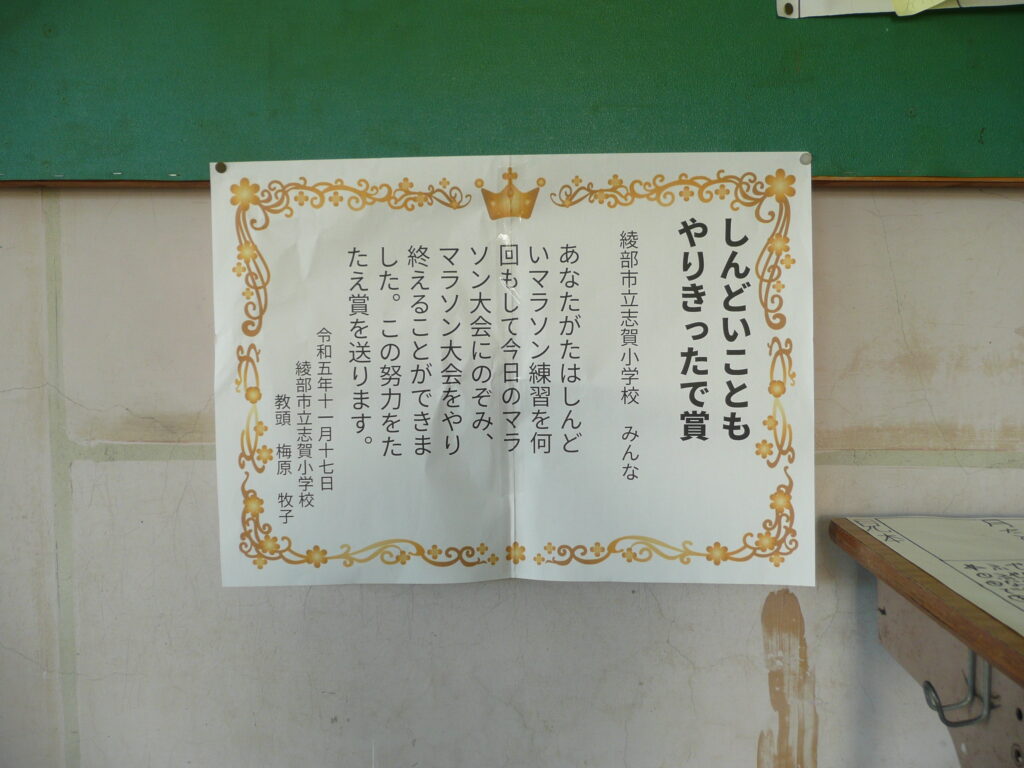 しんどいことも
やりきったで賞
綾部市立志賀小学校 みんな
あなたがたはしんど
いマラソン練習を何
回もして今日のマラ
ソン大会にのぞみ、
マラソン大会をやり
終えることができま
した。この努力をた
たえ賞を送ります。
令和五年十一月十七日
綾部市立志賀小学校
教頭 梅原 牧子